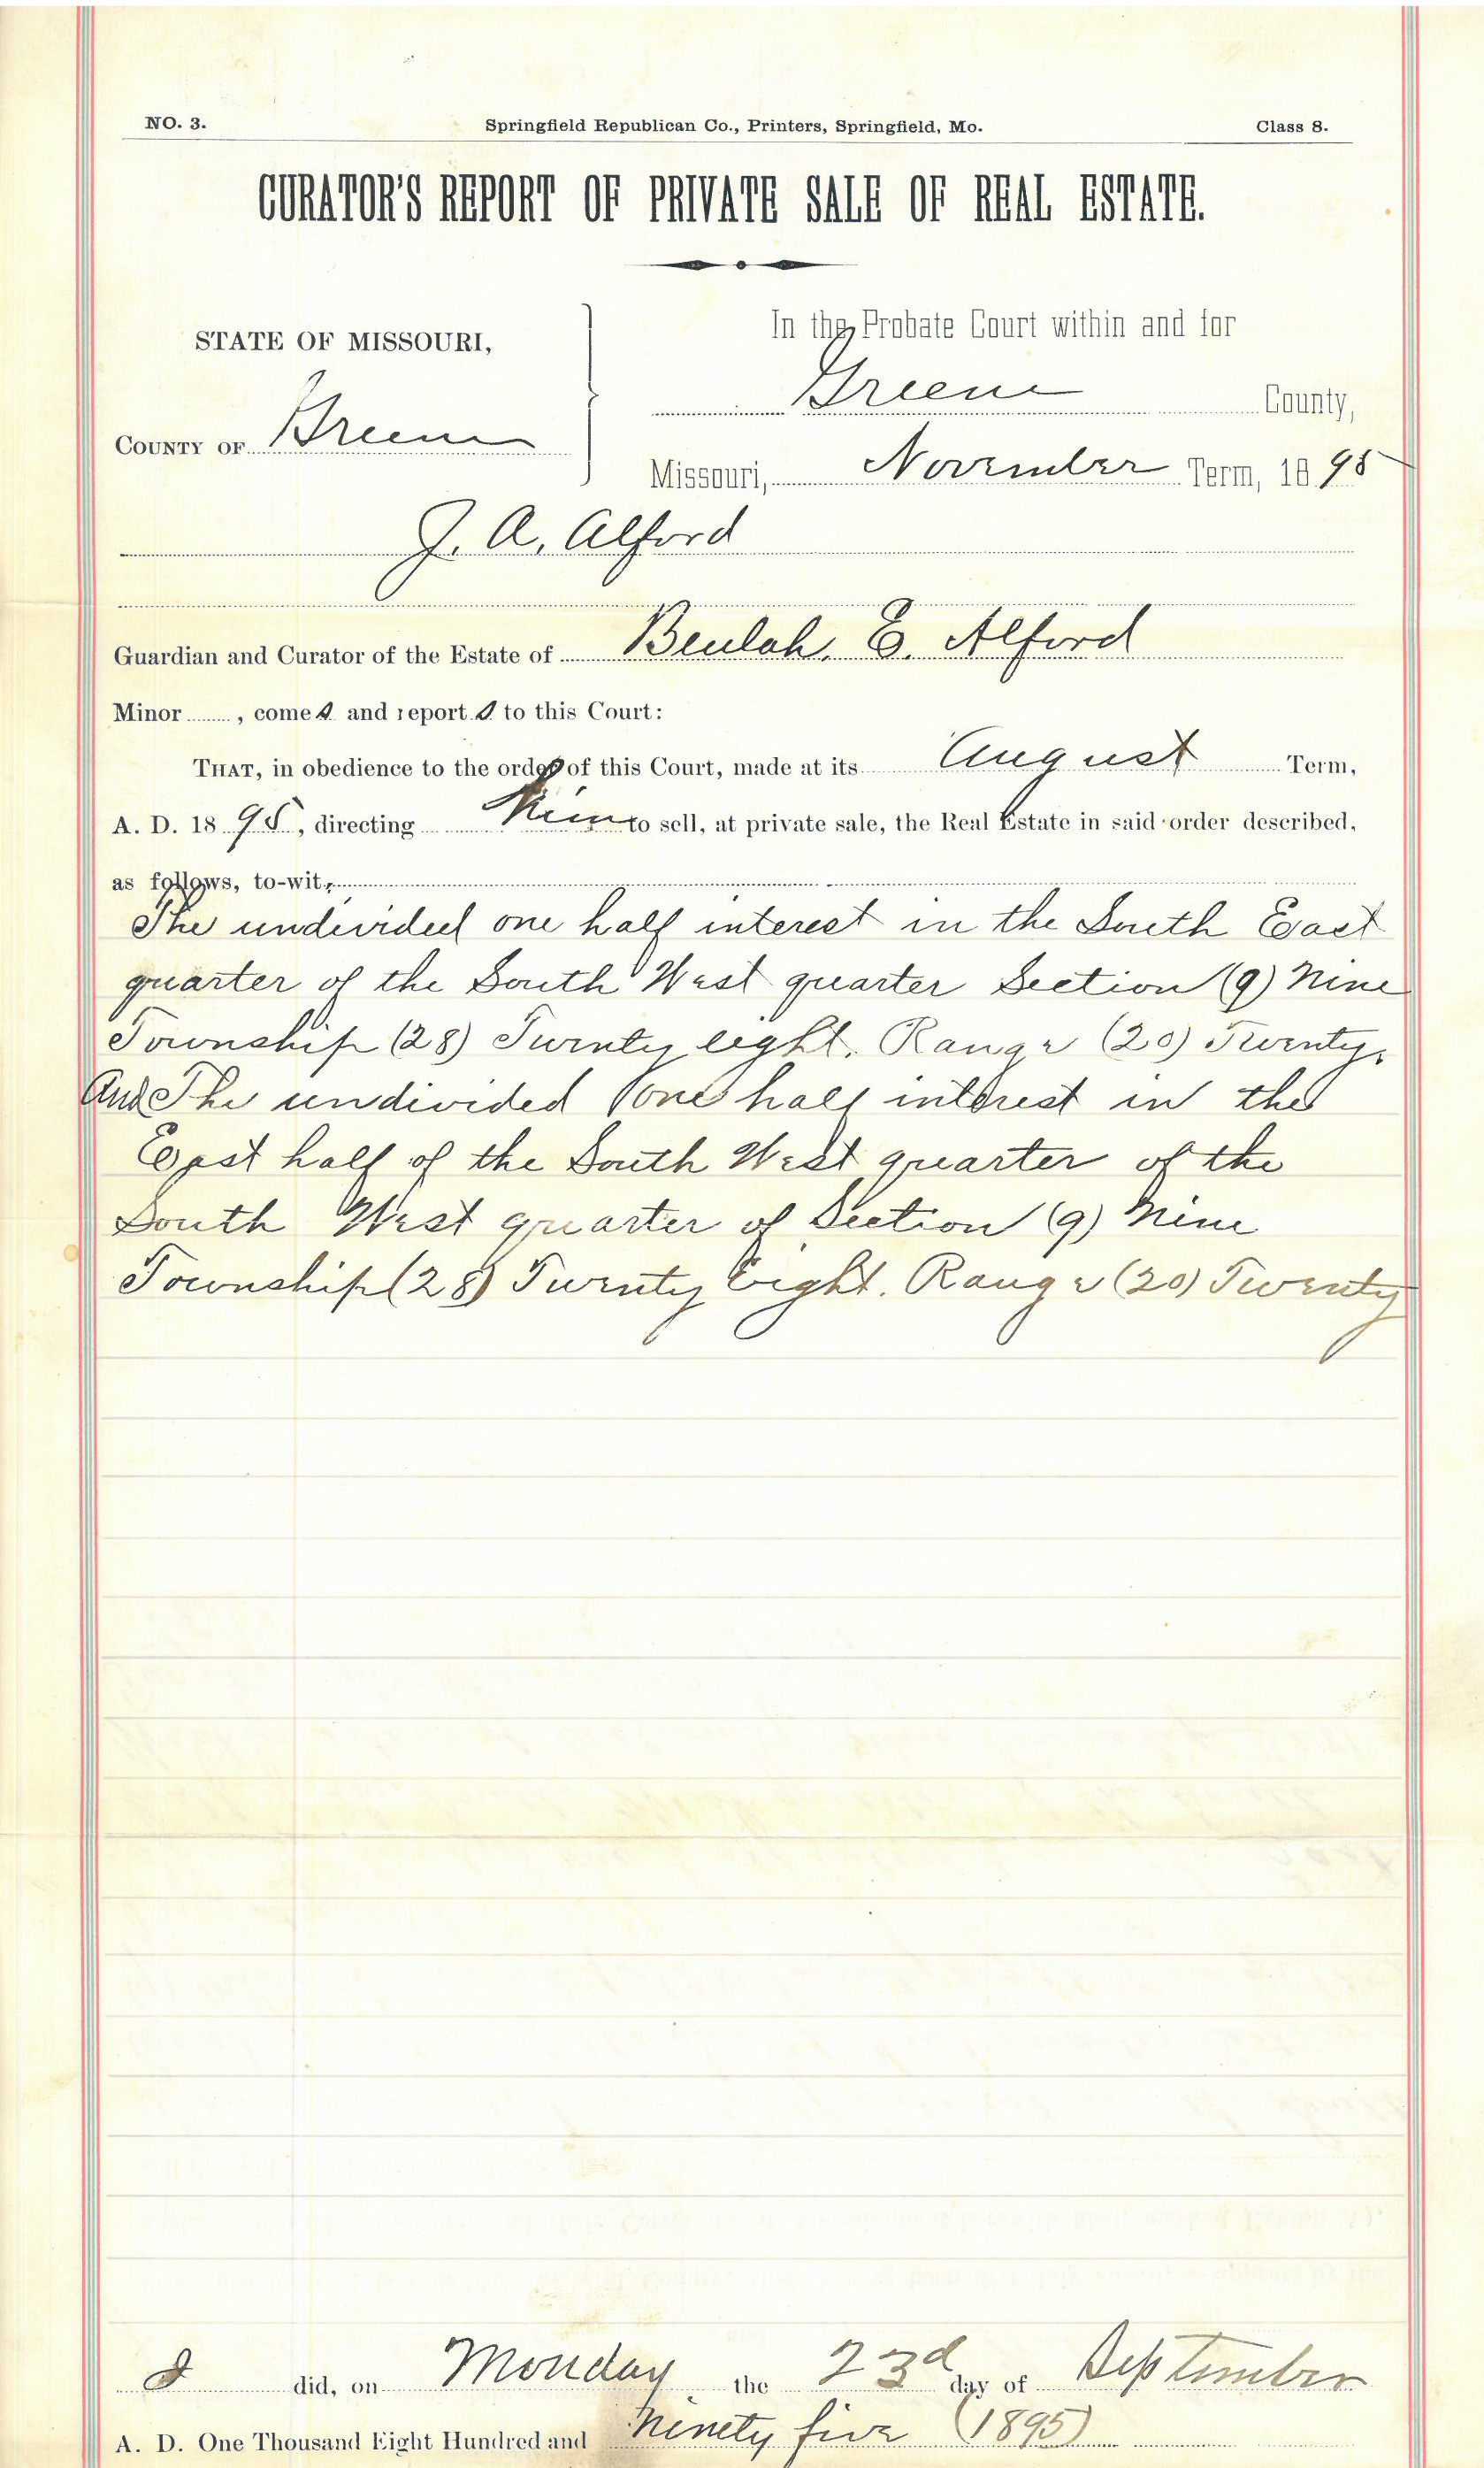 NO. 3. Springfield Republican Co., Printers, Springfield, Mo. Class 8.
CURATOR'S REPORT OF PRIVATE SALE OF REAL ESTATE.
STATE OF MISSOURI,
COUNTY OF Greene
In the Probate Court within and for
Greene County,
Missouri, November Term, 1895
J. A. Alford
Guardian and Curator of the Estate of Beulah. E. Alford
Minor , comes and reports to this Court:
THAT, in obedience to the order of this Court, made at its August Term,
A. D. 1895, directing him to sell, at private sale, the Real Estate in said order described,
as follows, to-wit:
The undivided one half interest in the South East
quarter of the South West quarter Section (9) Nine
Township (28) Twenty eight. Range (20) Twenty.
And The undivided one half interest in the
East half of the South West quarter of the
South West quarter of Section (9) Nine
Township (28) Twenty Eight. Range (20) Twenty
I did, on Monday the 23d day of September
A. D. One Thousand Eight Hundred and Ninety five (1895)